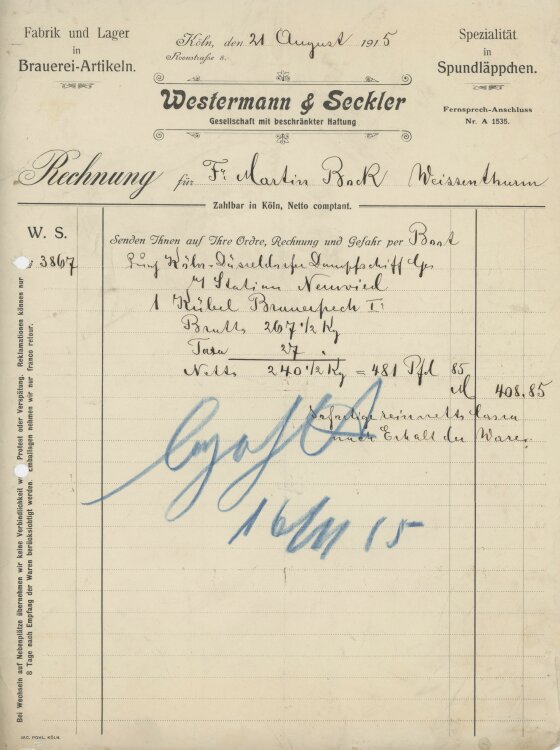 Fabrik und Lager
in
Brauerei-Artikeln.
Köln, den 21 August 1915
Roonstraße 8.
Spezialität
in
Spundläppchen.
Fernsprech-Anschluss
Nr. A 1535.
Westermann & Seckler
Gesellschaft mit beschränkter Haftung
Rechnung für Fr. Martin Bock Weissenthurm
Zahlbar in Köln, Netto comptant.
W. S.
Senden Ihnen auf Ihre Ordre, Rechnung und Gefahr per Boot
3867
Köln-Düsseldorfer Dampfschiff Ges
Station Neuwied
1 Kübel Brauerpech Ia
Brutto 267 1/2 Kg
Tara 27 "
Netto 240 1/2 Kg = 481 Pfd 85
M 408.85
reinnetto Cassa
nach Erhalt der Ware
16/11 15
Bei Wechseln auf Nebenplätze übernehmen wir keine Verbindlichkeit Protest oder Verspätung. Reklamationen können nur
8 Tage nach Empfang der Waren berücksichtigt werden. Emballagen nehmen wir nur franco retour.
JAC. POHL, KÖLN.